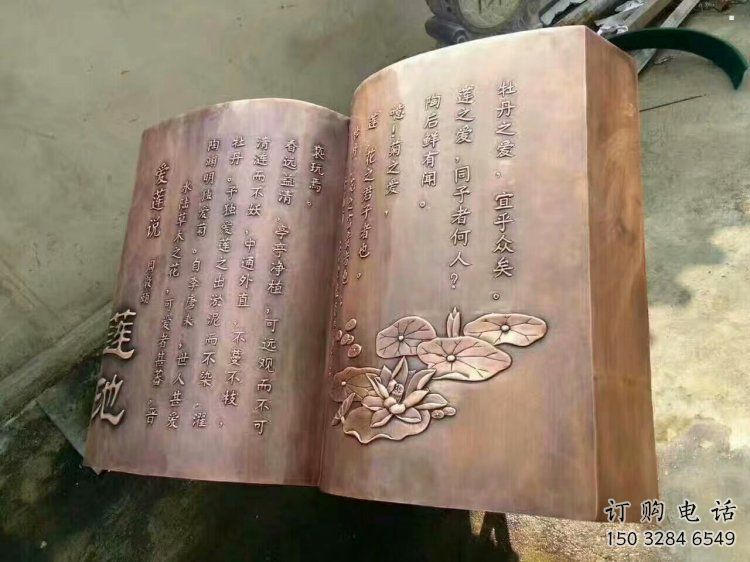 莲池
爱莲说 周敦颐
水陆草木之花,可爱者甚蕃,晋
陶渊明独爱菊。自李唐来,世人甚爱
牡丹。予独爱莲之出淤泥而不染,濯
清涟而不妖,中通外直,不蔓不枝,
香远益清,亭亭净植,可远观而不可
亵玩焉。
莲,花之君子者也。
噫!菊之爱,
陶后鲜有闻。
莲之爱,同予者何人?
牡丹之爱,宜乎众矣。
订购电话
150 3284 6549